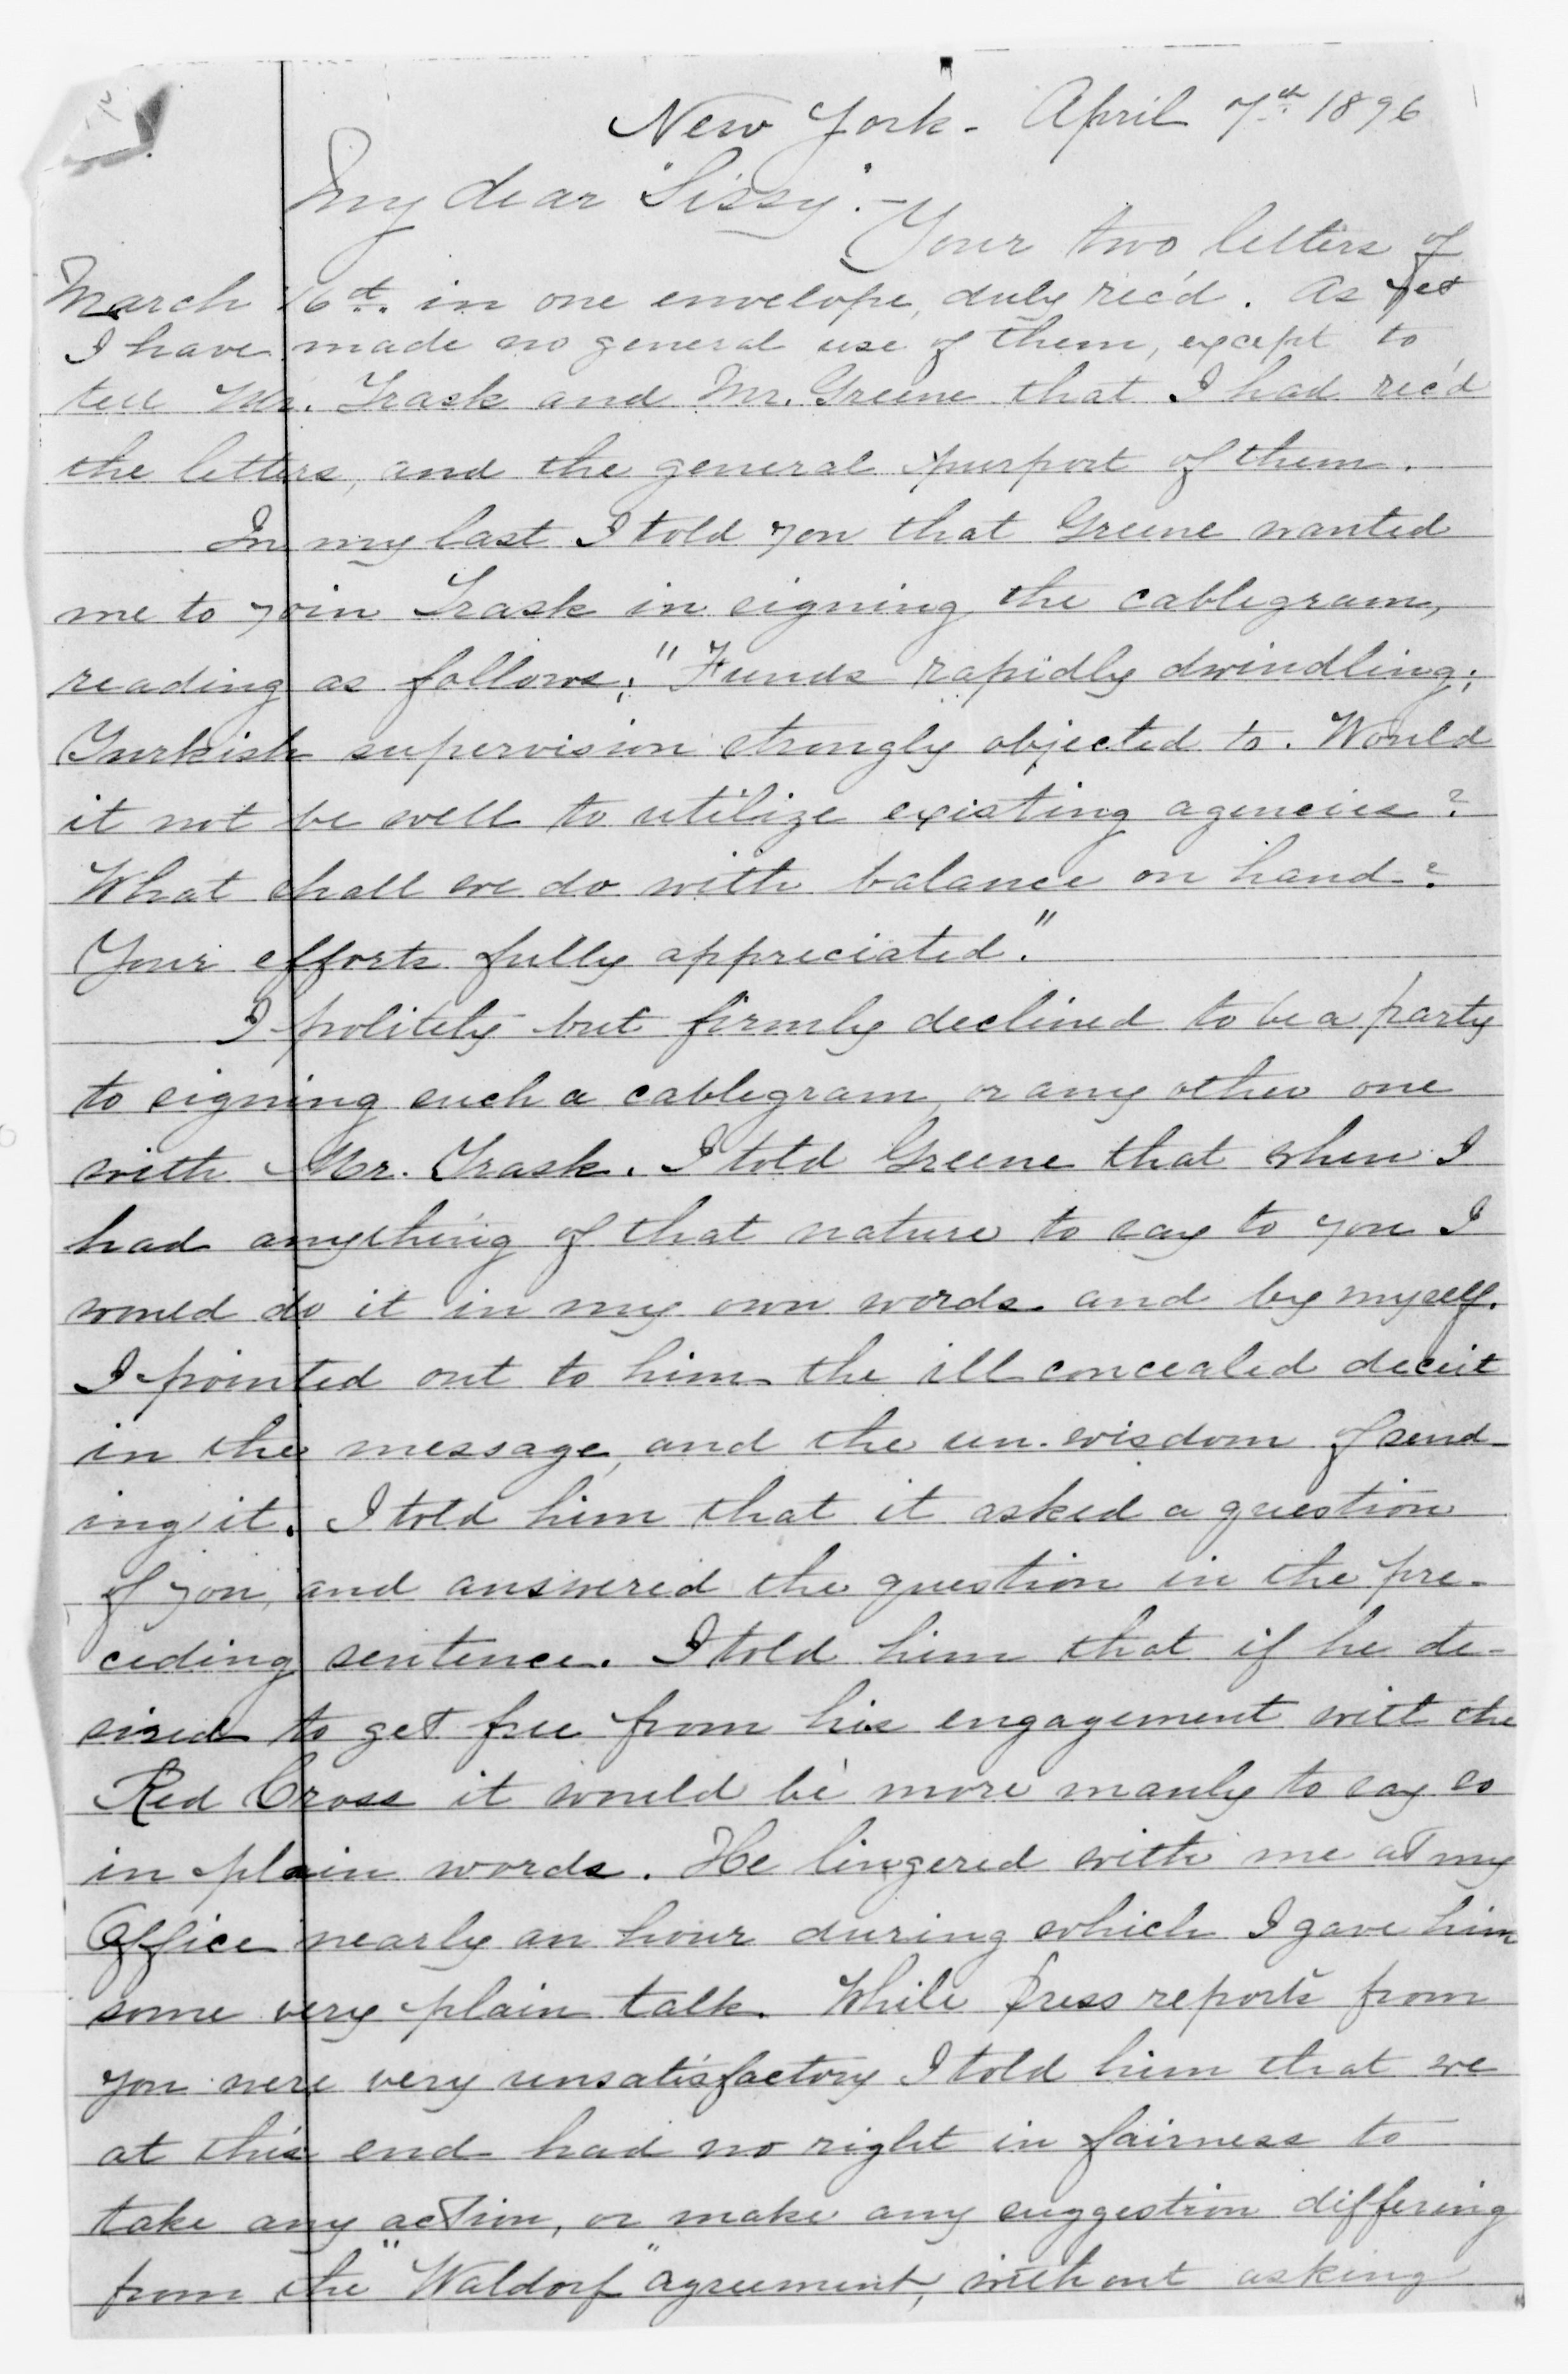 New York - April 7th. 1896
My dear "Sissy".-
Your two letters of
March 16th. in one envelope, duly rec'd. As yet
I have made no general use of them, except to
tell Mr. Trask and Mr. Greene that I had rec'd
the letters, and the general purport of them.
In my last I told you that Greene wanted
me to join Trask in signing the cablegram,
reading as follows: "Funds rapidly dwindling;
Turkish supervision strongly objected to. Would
it not be well to utilize existing agencies?
What shall we do with balance on hand?
Your efforts fully appreciated."
I politely but firmly declined to be a party
to signing such a cablegram, or any other one
with Mr. Trask. I told Greene that when I
had anything of that nature to say to you I
would do it in my own words and by myself.
I pointed out to him the ill concealed deceit
in the message, and the un-wisdom of send-
ing it. I told him that it asked a question
of you, and answered the question in the pre-
ceding sentence. I told him that if he de-
sired to get free from his engagement with the
Red Cross it would be more manly to say so
in plain words. He lingered with me at my
Office nearly an hour during which I gave him
some very plain talk. While Press reports from
you were very unsatisfactory I told him that we
at this end had no right in fairness to
take any action, or make any suggestion differing
from the "Waldorf" agreement, without asking